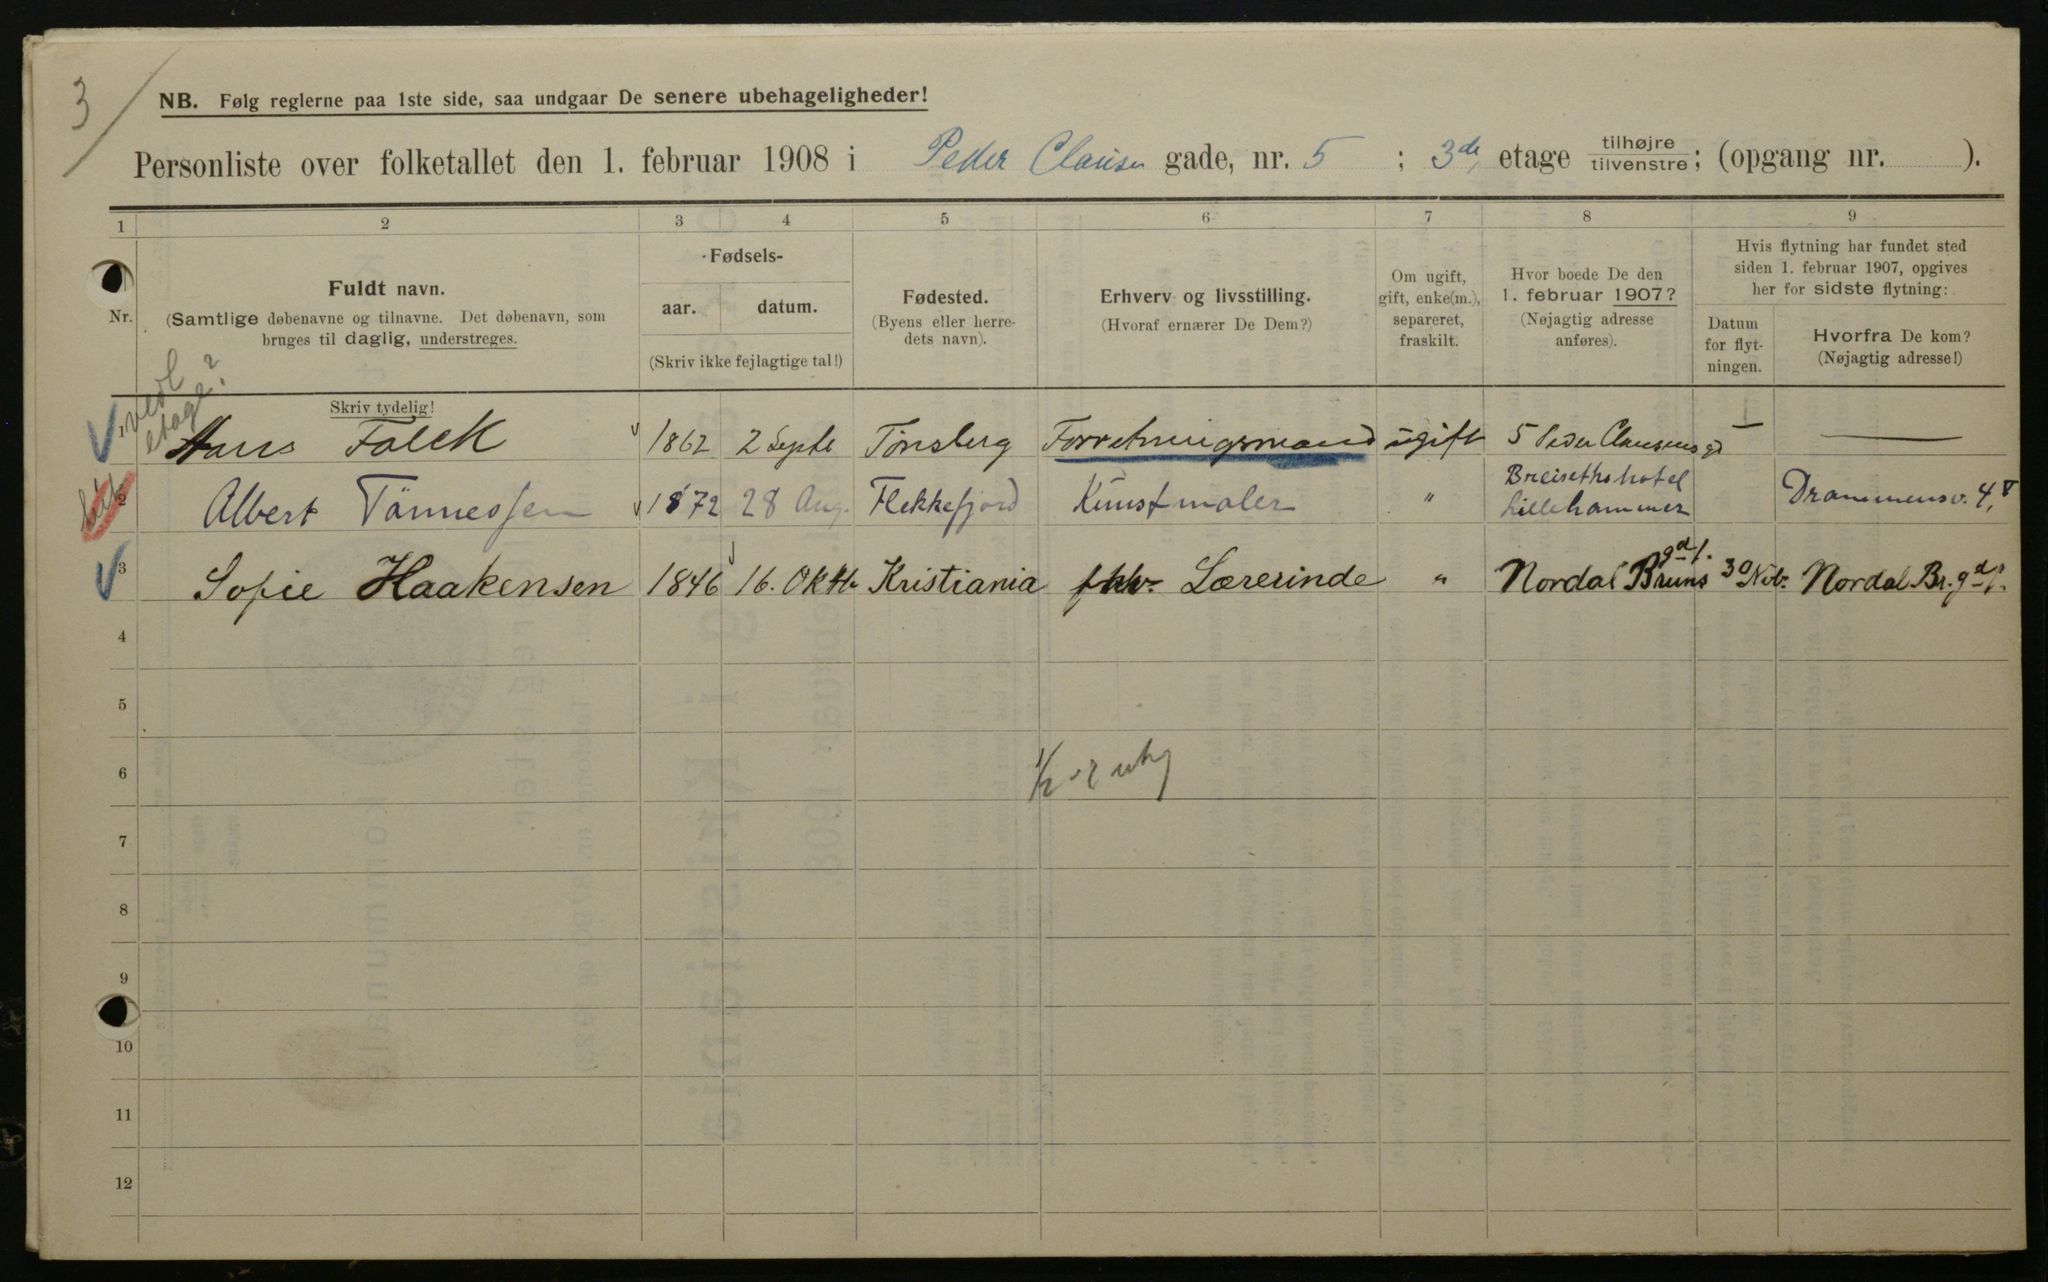 3
NB. Følg reglerne paa 1ste side, saa undgaar De senere ubehageligheder!
Personliste over folketallet den 1. februar 1908 i Peder Clausen gade, nr. 5 ; 3de etage tilhøjre tilvenstre; (opgang nr. ).
1 2 3 4 5 6 7 8 9
Nr.
Fuldt navn.
(Samtlige døbenavne og tilnavne. Det døbenavn, som
bruges til daglig, understreges.
Skriv tydelig!
Fødsels-
aar. datum.
(Skriv ikke fejlagtige tal!)
Fødested.
(Byens eller herre-
dets navn).
Erhverv og livsstilling.
(Hvoraf ernærer De Dem?)
Om ugift,
gift, enke(m.),
separeret,
fraskilt.
Hvor boede De den
1. februar 1907?
(Nøjagtig adresse
anføres).
Hvis flytning har fundet sted
siden 1. februar 1907, opgives
her for sidste flytning:
Datum
for flyt-
ningen.
Hvorfra De kom?
(Nøjagtig adresse!)
etage?
1 Hans Falck 1862 2 Septe Tønsberg Forretningsmand ugift 5 Peder Clausens gd —
2 Albert Tönnessen 1872 28 Aug. Flekkefjord Kunstmaler " Breisethshotel Lillehammer Drammensv. 4,
3 Sofie Haakensen 1846 16. Oktb Kristiania Lærerinde " Nordal Bruns gd 30 Nov. Nordal Br. gd
4
5
6
7
8
9
10
11
12